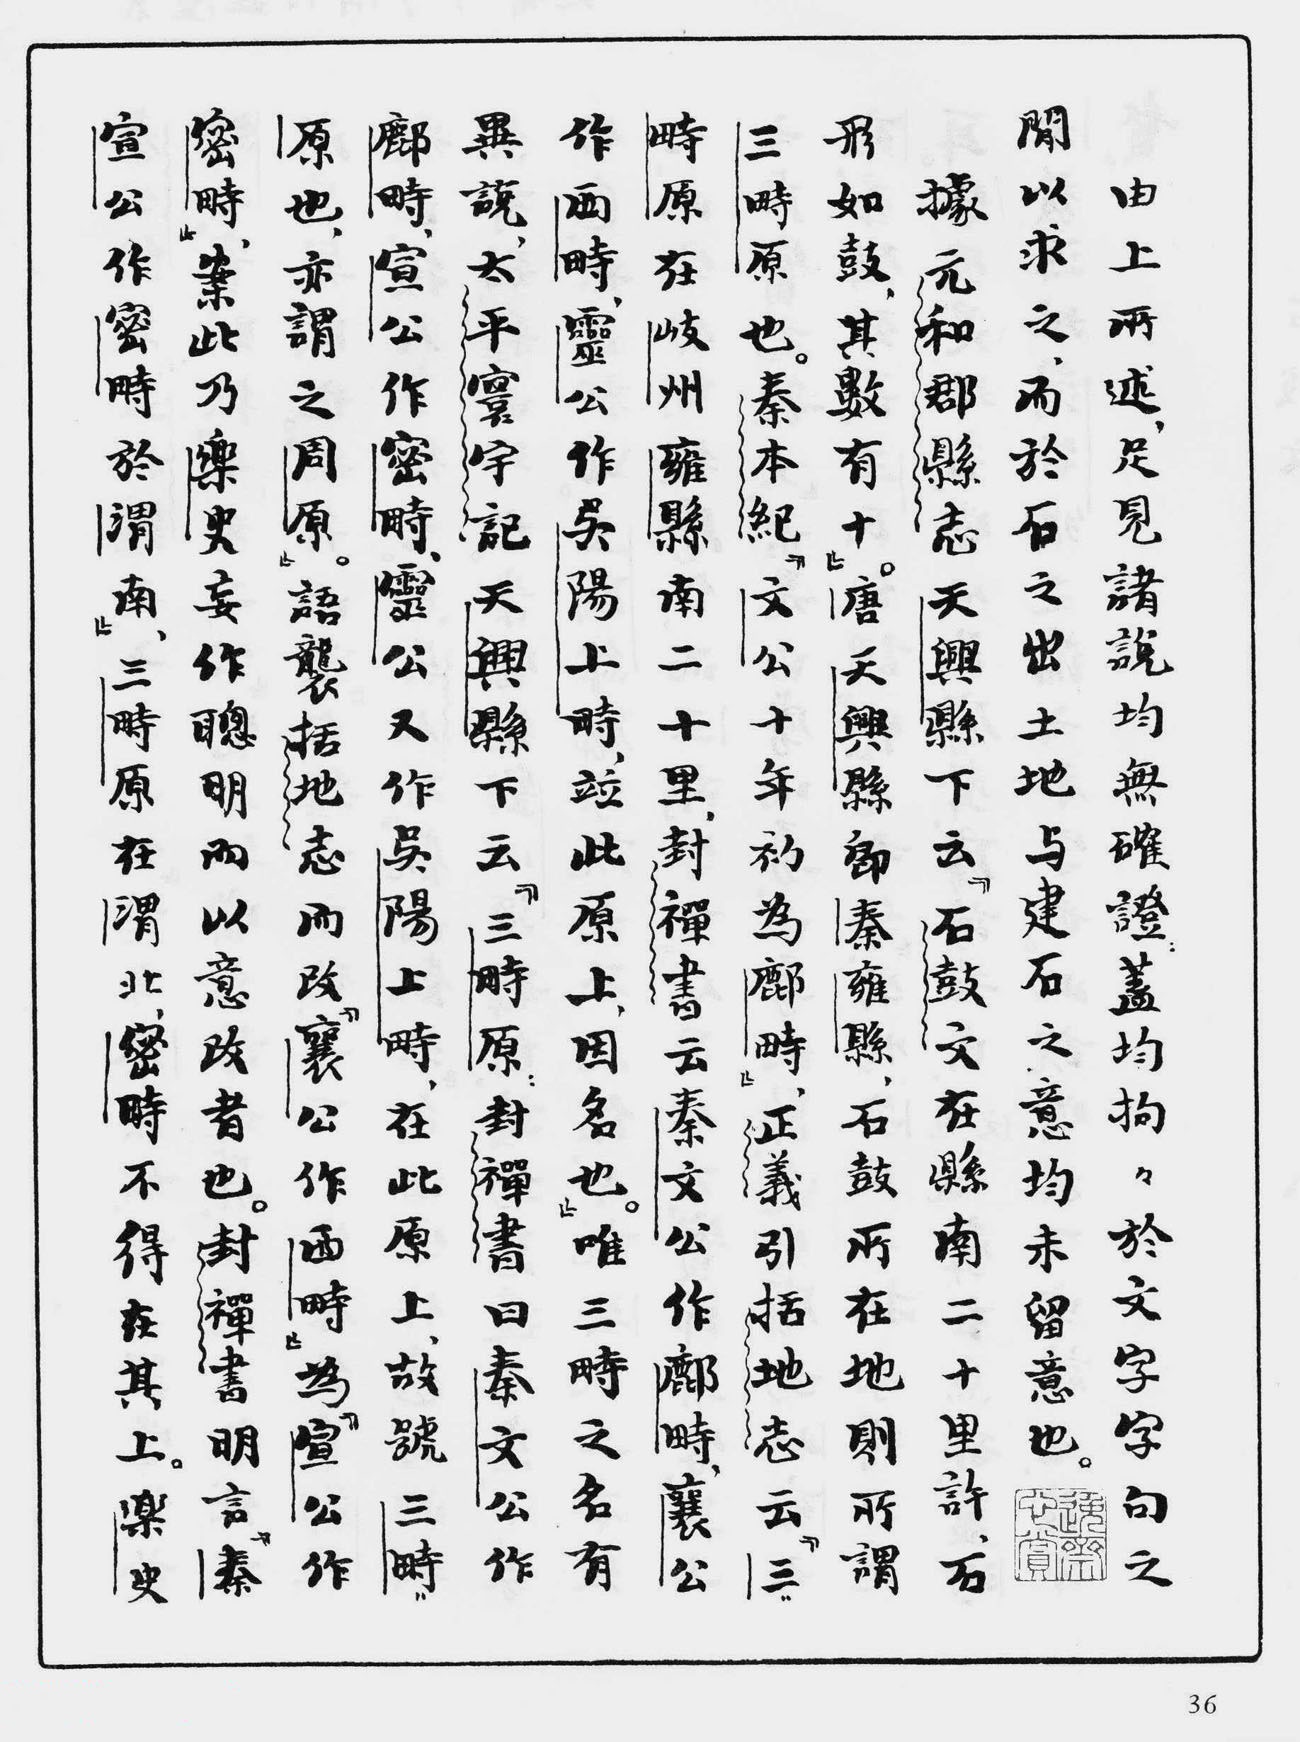 由上所述，足見諸說均無確證：蓋均拘々於文字字句之
間以求之，而於石之出土地与建石之意均未留意也。
據元和郡縣志天興縣下云『石鼓文在縣南二十里許，石
形如鼓，其數有十』。唐天興縣卽秦雍縣，石鼓所在地則所謂
三畤原也。秦本紀『文公十年初為鄜畤』，正義引括地志云『三
畤原在岐州雍縣南二十里，封禪書云秦文公作鄜畤，襄公
作西畤，靈公作吳陽上畤，竝此原上，因名也』。唯三畤之名有
異說，太平寰宇記天興縣下云『三畤原：封禪書曰秦文公作
鄜畤，宣公作密畤，靈公又作吳陽上畤，在此原上，故號三畤
原也，亦謂之周原』。語襲括地志而改『襄公作西畤』為『宣公作
密畤』，案此乃樂史妄作聰明而以意改者也。封禪書明言『秦
宣公作密畤於渭南』，三畤原在渭北，密畤不得在其上。樂史
36